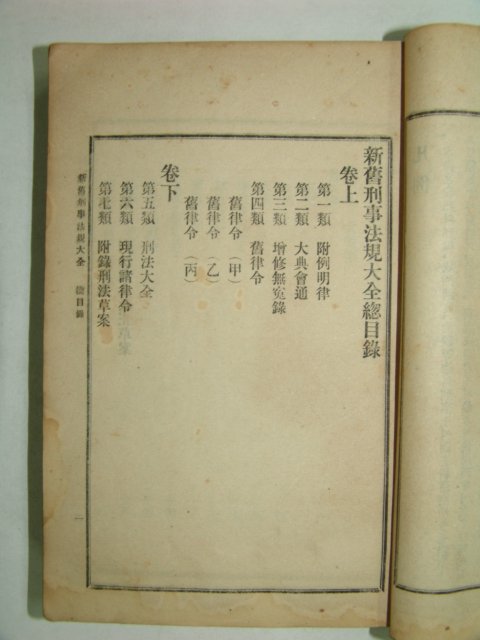 新舊刑事法規大全總目錄
卷上
第一類 附例明律
第二類 大典會通
第三類 增修無冤錄
第四類 舊律令
舊律令（甲）
舊律令（乙）
舊律令（丙）
卷下
第五類 刑法大全
第六類 現行諸律令
第七類 附錄刑法草案
新舊刑事法規大全 總目錄 一